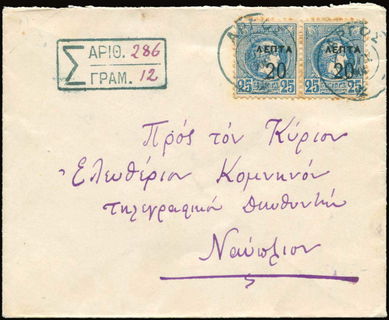 Σ ΑΡΙΘ. 286
ΓΡΑΜ. 12
ΛΕΠΤΑ ΛΕΠΤΑ
20 20
25 25 25 25
Πρὸς τὸν Κύριον
Ἐλευθέριον Κομνηνόν
τηλεγραφικὸν Διευθυντὴν
Ναύπλιον